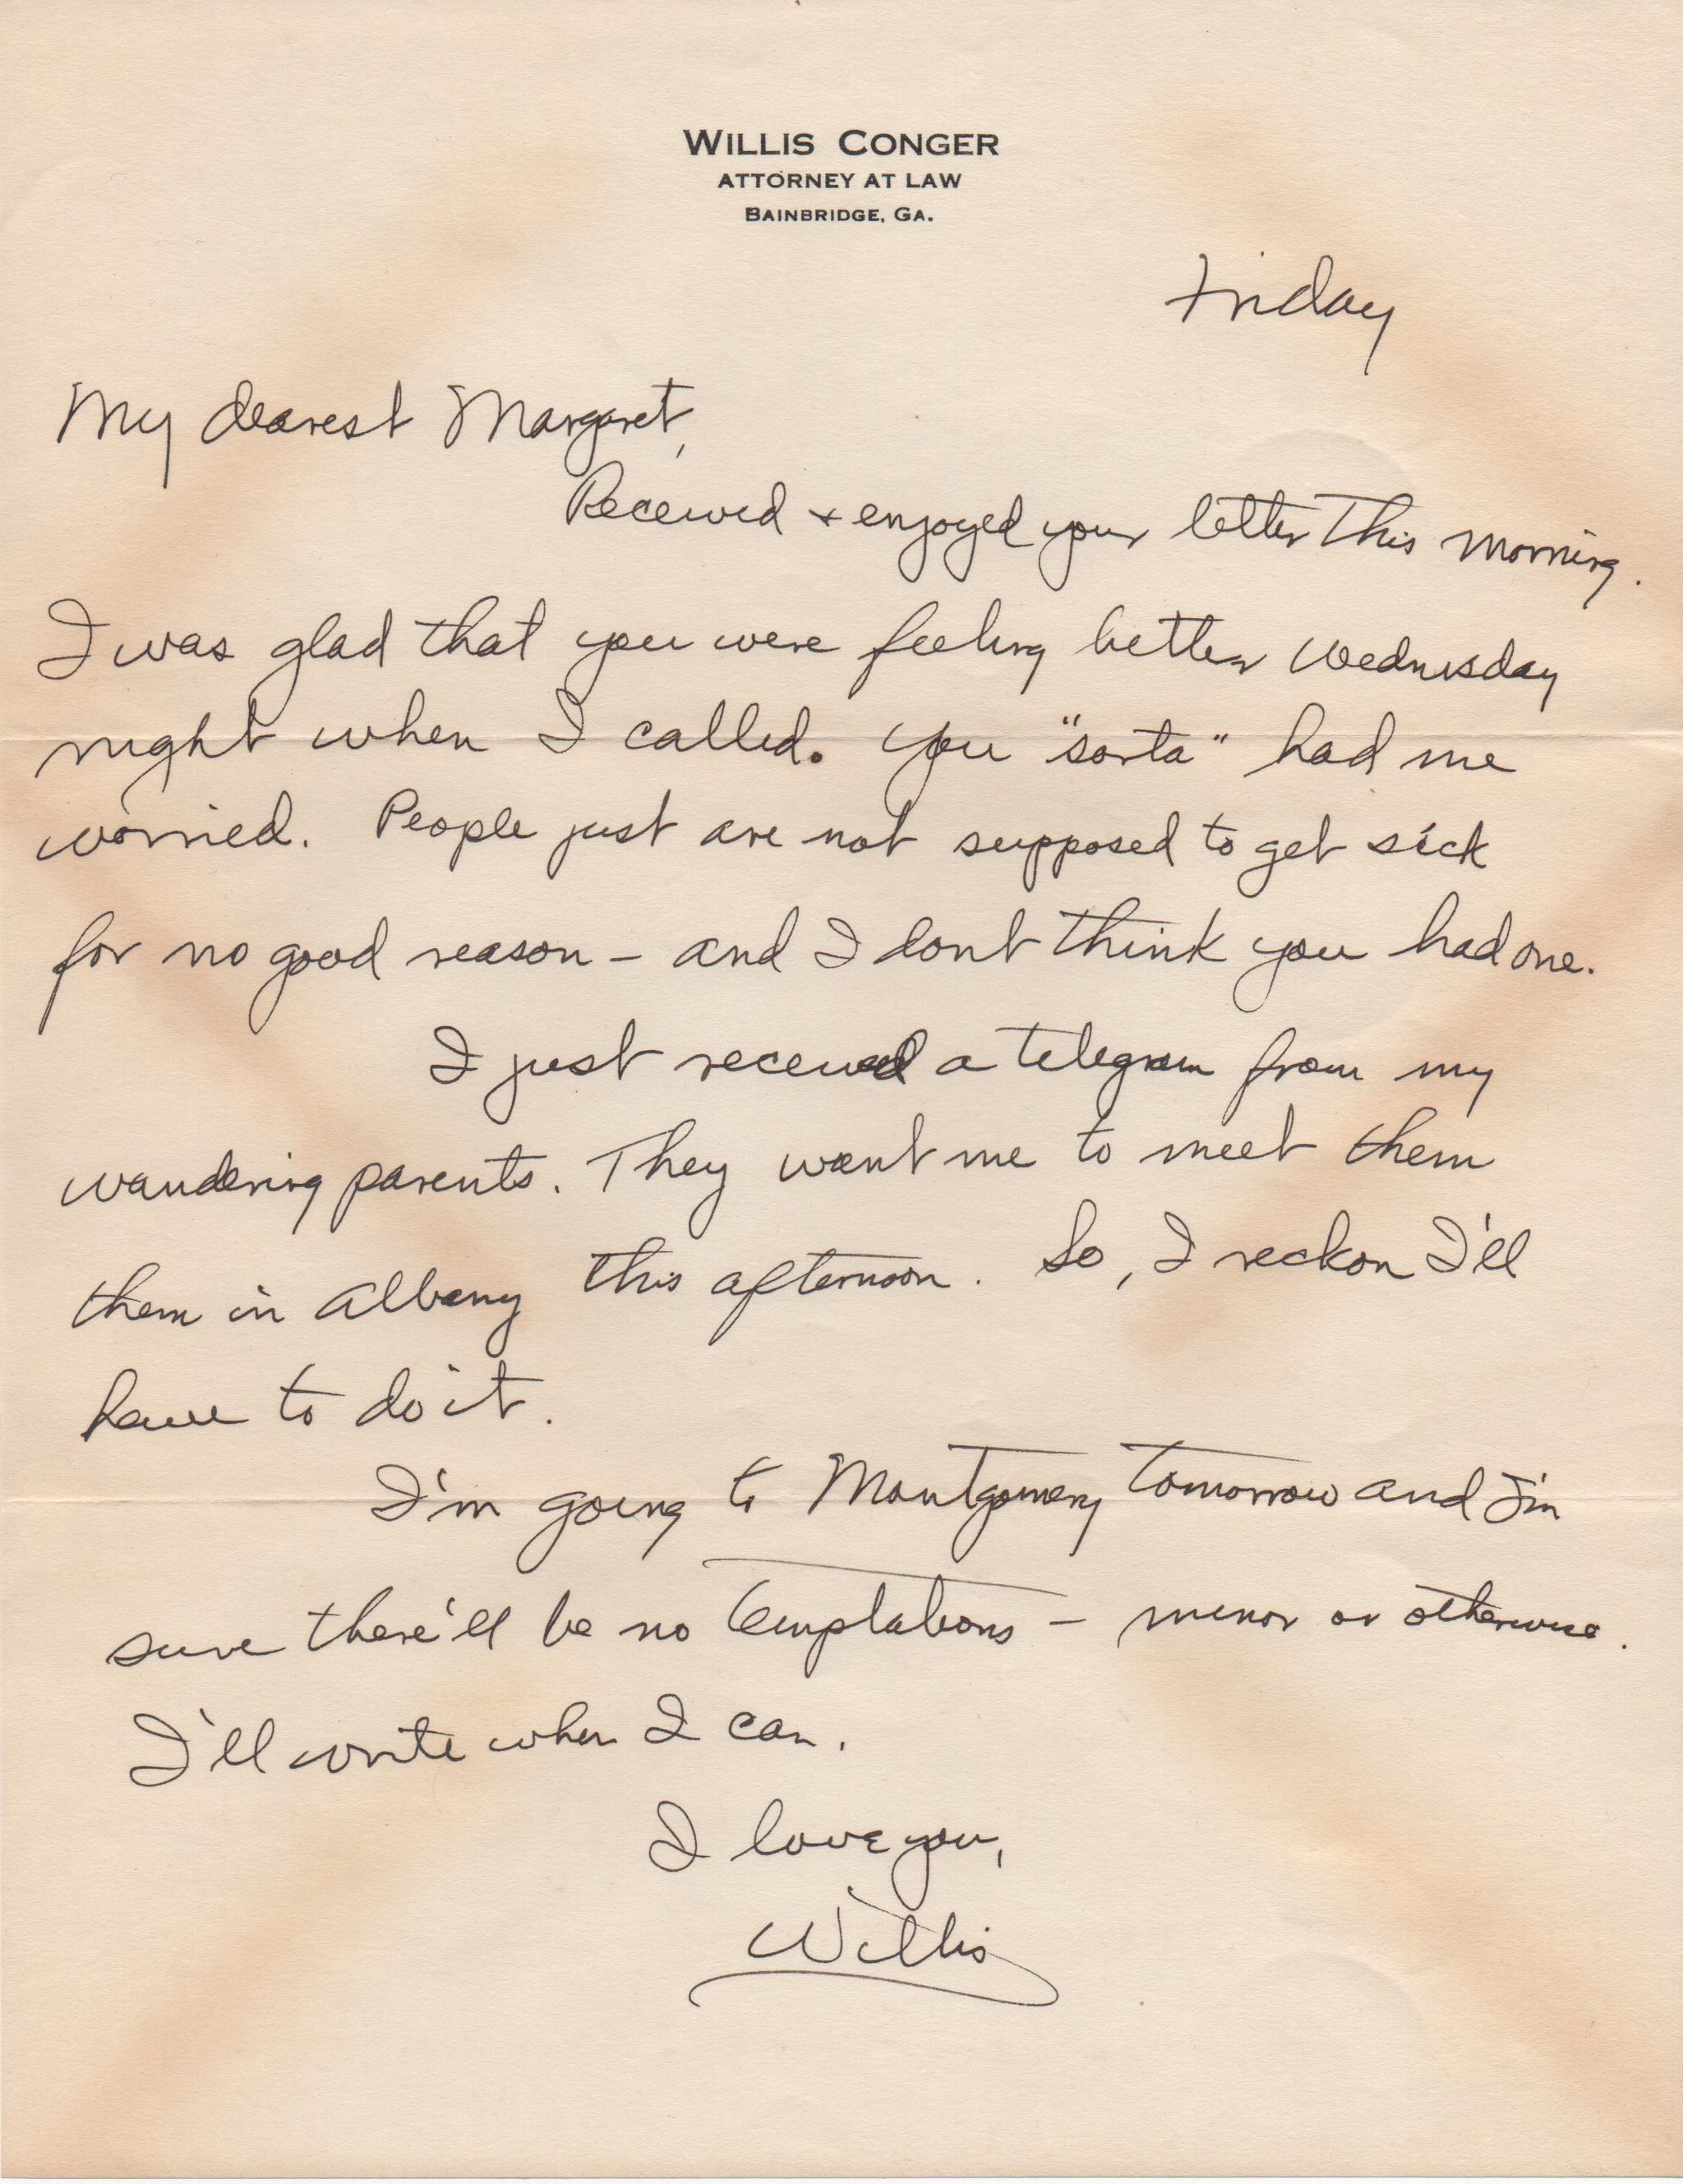 WILLIS CONGER
ATTORNEY AT LAW
BAINBRIDGE, GA.
Friday
My dearest Margaret,
Received + enjoyed your letter this morning.
I was glad that you were feeling better Wednesday
night when I called. You "sorta" had me
worried. People just are not supposed to get sick
for no good reason - and I dont think you had one.
I just received a telegram from my
wandering parents. They want me to meet them
them in Albany this afternoon. So, I reckon I'll
have to do it.
I'm going to Montgomery tomorrow and I'm
sure there'll be no temptations - minor or otherwise.
I'll write when I can.
I love you,
Willis